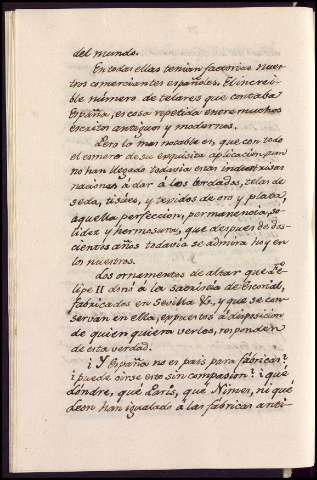 del mundo.
En todas ellas tenian factorias nues-
tros comerciantes españoles. El increi-
ble número de telares que contaba
España, es cosa repetida entre muchos
escritos antiguos y modernos.
Pero lo mas notable es, que con todo
el esmero de su exquisita aplicacion, aun
no han llegado todavia estas industriosas
naciones á dar á los bordados, telas de
seda, tisúes, y texidos de oro y plata,
aquella perfeccion, permanencia, so-
lidez y hermosura, que despues de dos-
cientos años todavia se admira hoy en
los nuestros.
Los ornamentos de altar que Fe-
lipe II donó á la sacristia de Escorial,
fabricados en Sevilla &c. y que se con-
servan en ella, expuestos á disposicion
de quien quiera verlos, responden
de esta verdad.
¿Y España no es pais para fabricas?
¿puede oirse esto sin compasion? ¿qué
Londres, qué Paris, qué Nimes, ni qué
Leon han igualado á las fábricas anti-